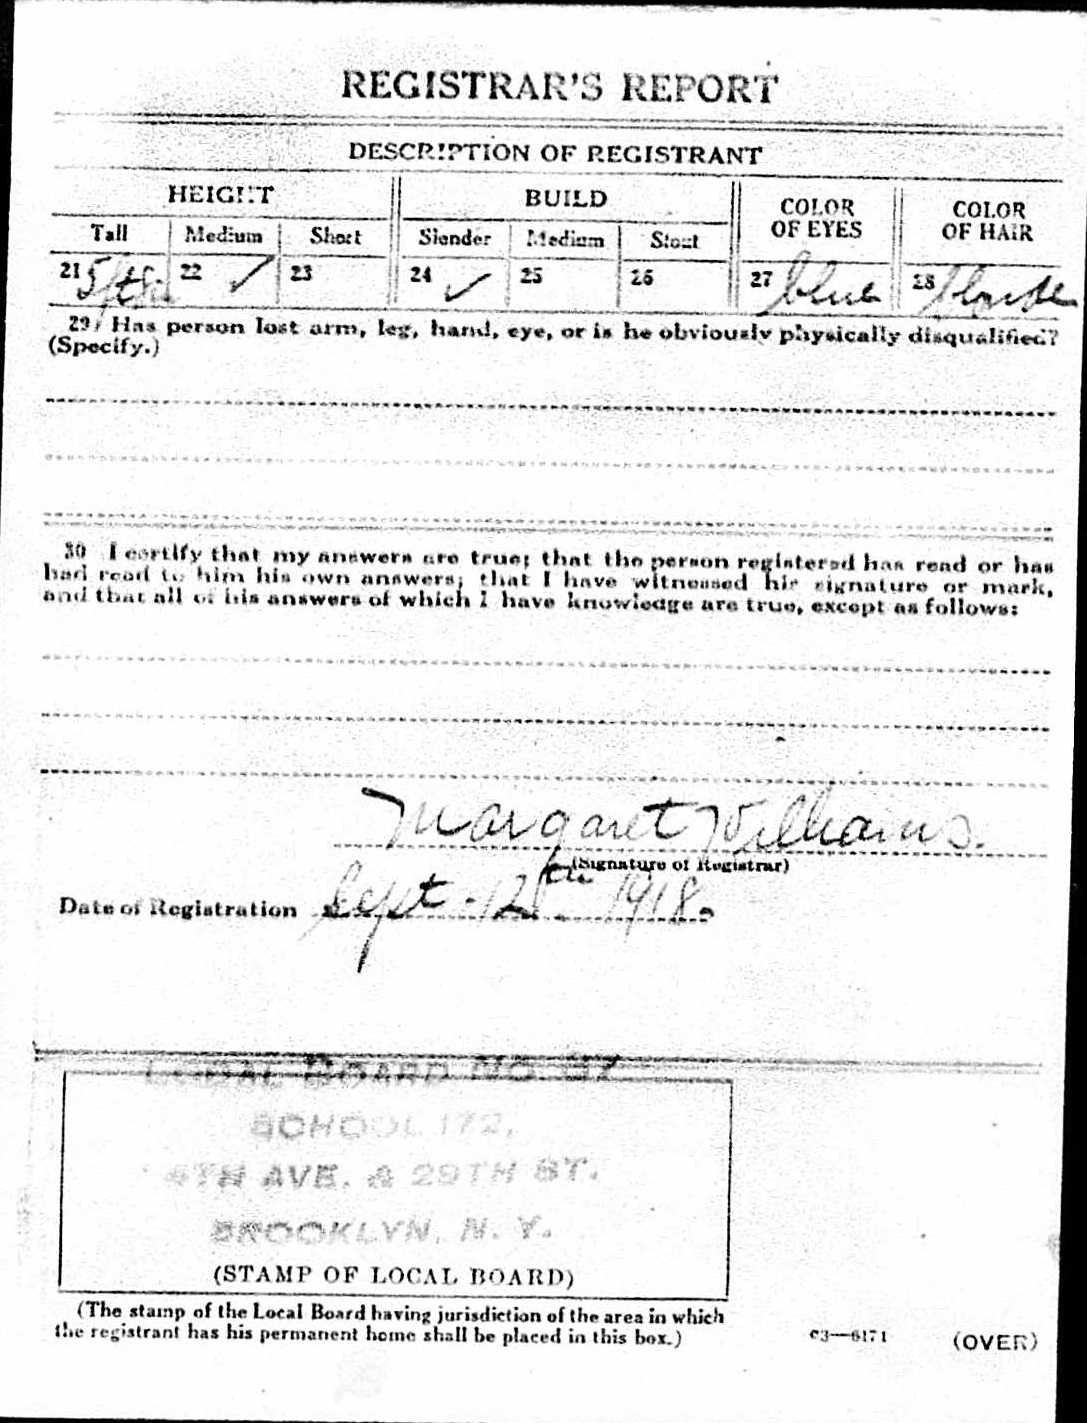 REGISTRAR'S REPORT
DESCRIPTION OF REGISTRANT
HEIGHT BUILD COLOR OF EYES COLOR OF HAIR
Tall Medium Short Slender Medium Stout
21 5ft 8in 22 ✓ 23 24 ✓ 25 26 27 blue 28 blonde
29 Has person lost arm, leg, hand, eye, or is he obviously physically disqualified?
(Specify.)
30 I certify that my answers are true; that the person registered has read or has
had read to him his own answers; that I have witnessed his signature or mark,
and that all of his answers of which I have knowledge are true, except as follows:
Margaret Williams.
(Signature of Registrar)
Date of Registration Sept. 12th 1918.
LOCAL BOARD NO.
SCHOOL 172,
4TH AVE. & 29TH ST.
BROOKLYN, N. Y.
(STAMP OF LOCAL BOARD)
(The stamp of the Local Board having jurisdiction of the area in which
the registrant has his permanent home shall be placed in this box.)
03—6171 (OVER)